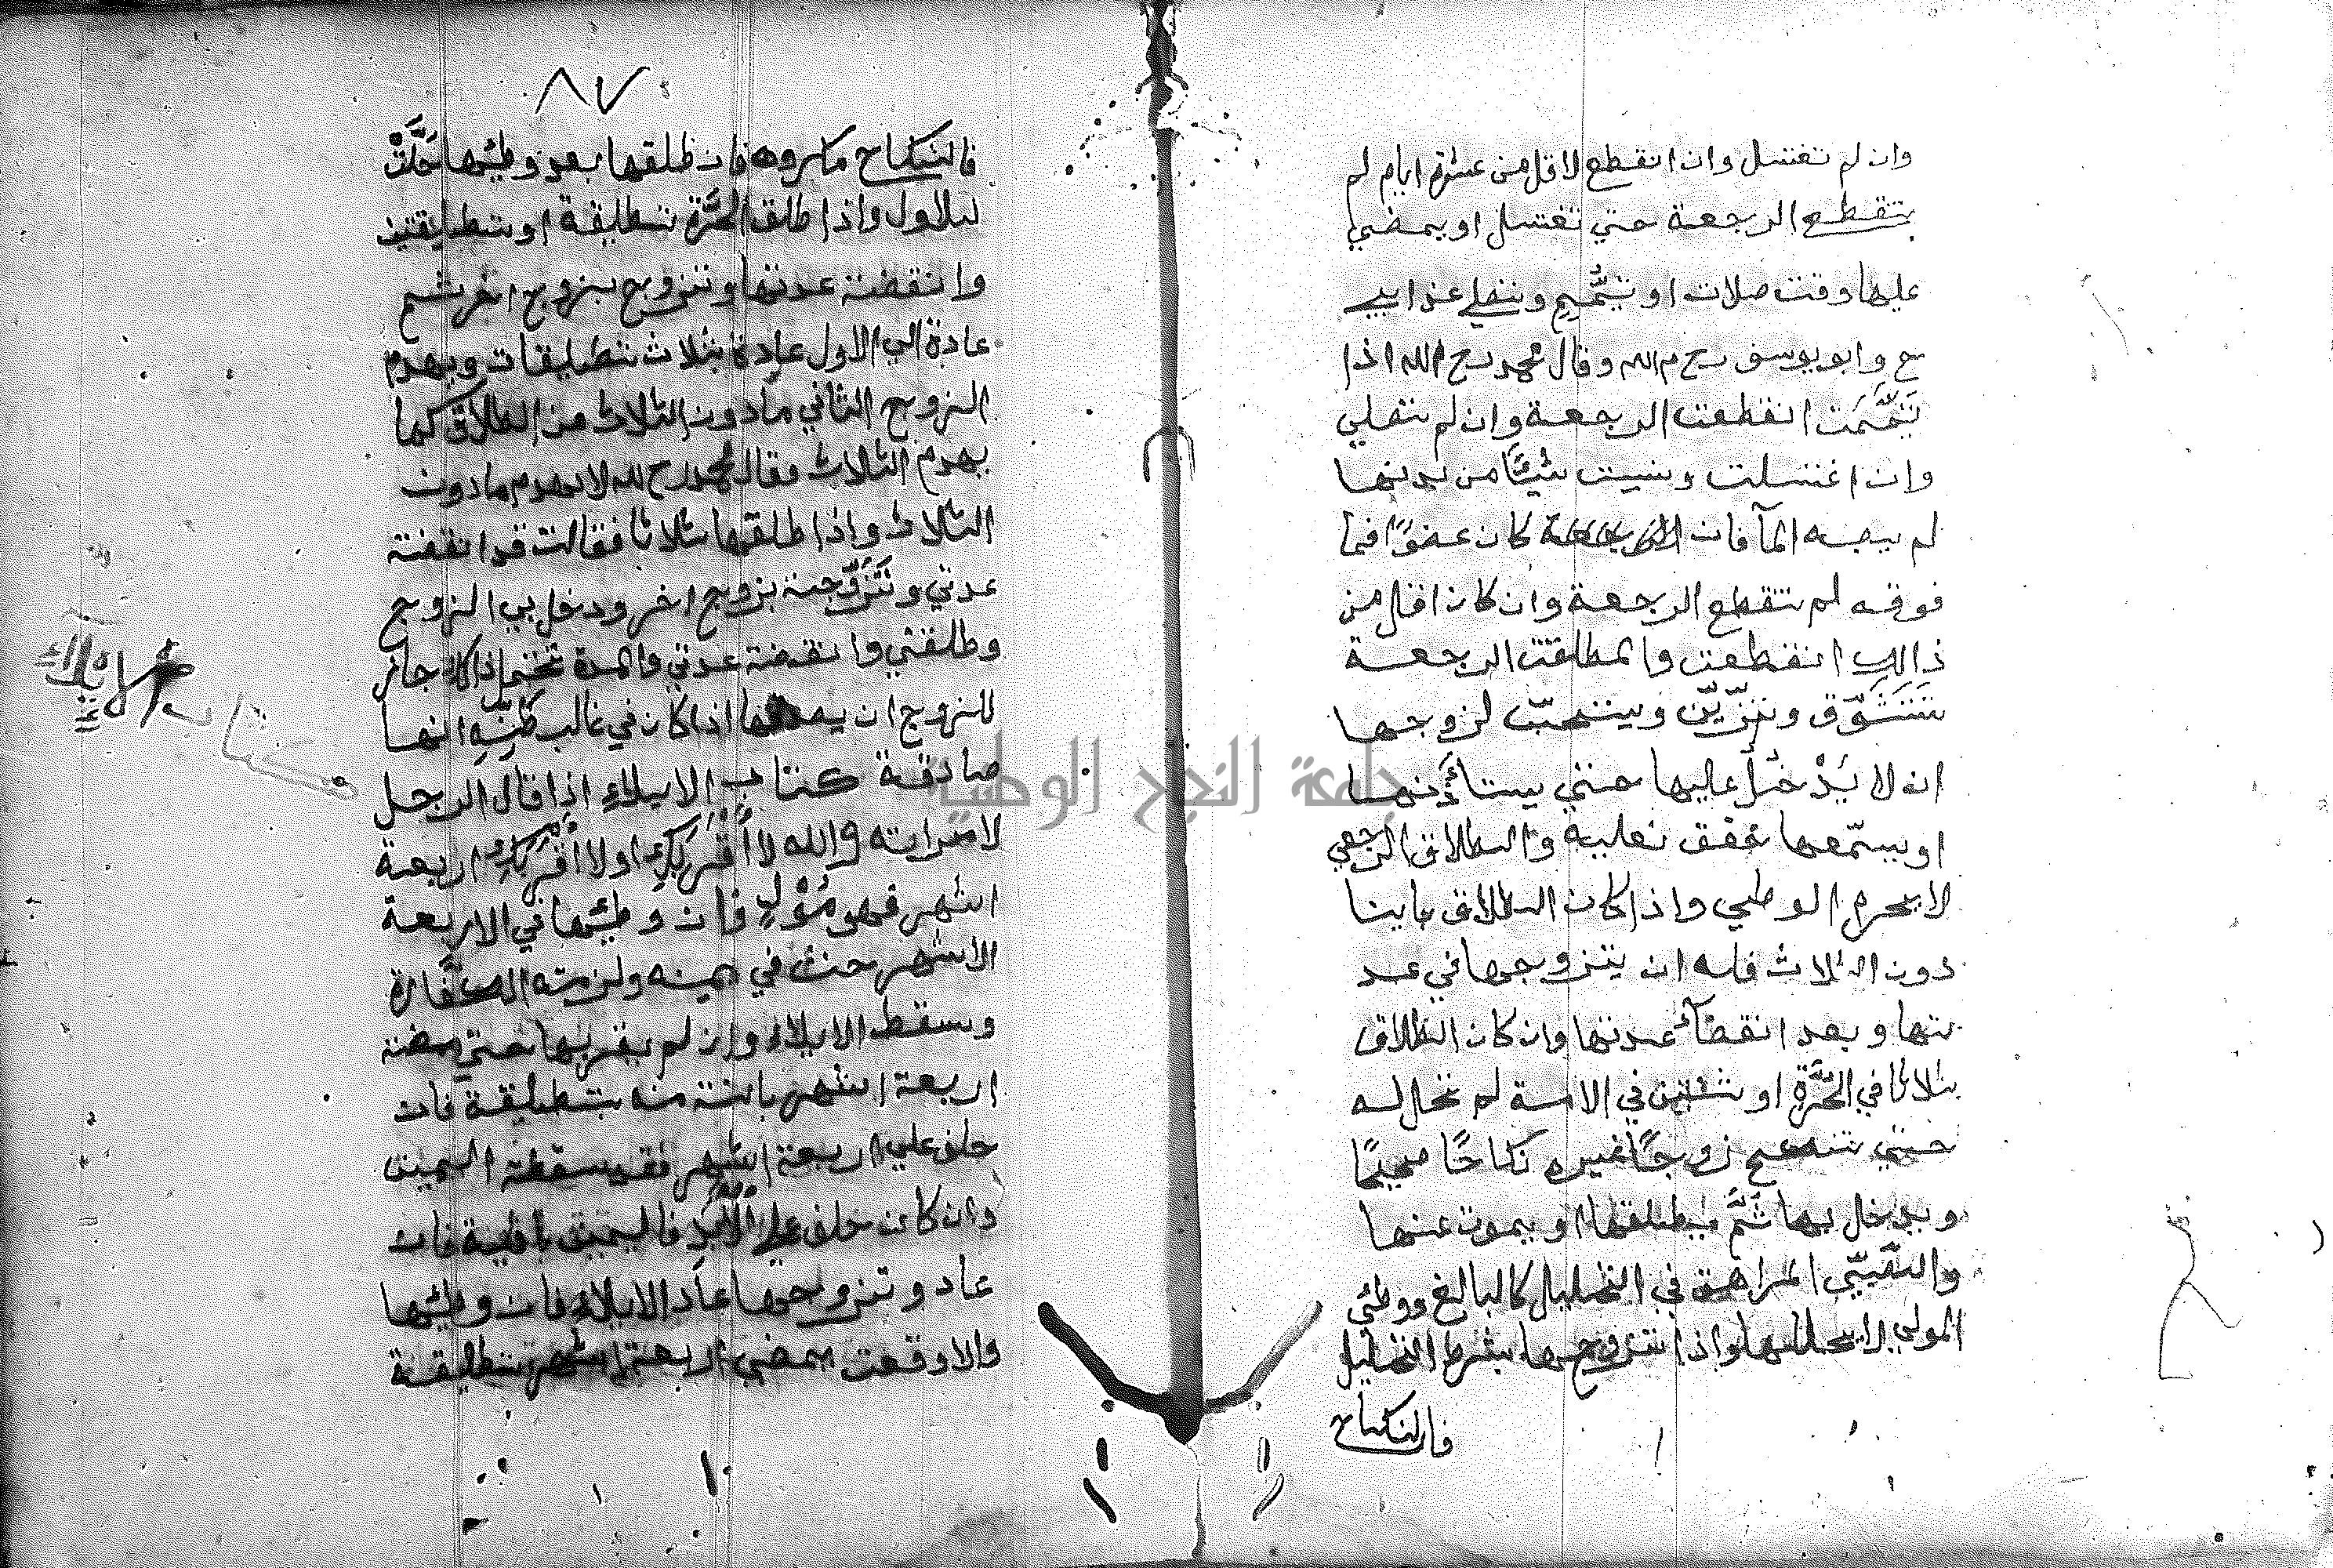 وان لم تغتسل وان انقطع لاقل من عشرة ايام لم
تنقطع الرجعة حتي تغتسل او يمضي
عليها وقت صلات او تتيمم وتصلي عند ابي
ح وابو يوسف رحمه الله وقال محمد رح الله اذا
تيممت انقطعت الرجعة وان لم تصلي
وان اغتسلت ونسيت شيئا من بدنها
لم يصبه المآ فان كان عضوا فما
فوقه لم تنقطع الرجعة وان كان اقل من
ذالك انقطعت والمطلقة الرجعة
تتشوق وتتزين ويستحب لزوجها
ان لا يدخل عليها حتي يستأذنها
او يسمعها خفق نعليه والطلاق الرجعي
لا يحرم الوطي واذا كان الطلاق باينا
دون الثلاث فله ان يتزوجها في عد
تها وبعد انقضآء عدتها وان كان الطلاق
ثلاثا في الحرة او ثنتين في الامة لم تحل له
حتي تنكح زوجا غيره نكاحا صحيحا
ويدخل بها ثم يطلقها او يموت عنها
والصبي المراهق في التحليل كالبالغ ووطئ
المولي لا يحللها واذا تزوجها بشرط التحليل
فالنكاح
٨٧
فالنكاح مكروه فان طلقها بعد وطئها حلت
للاول واذا طلق الحرة تطليقة او تطليقتين
وانقضت عدتها وتزوج بزوج اخر ثم
عادة الي الاول عادة بثلاث تطليقات ويهدم
الزوج الثاني مادون الثلاث من الطلاق كما
يهدم الثلاث وقال محمد رح لله لا يهدم مادون
الثلاث واذا طلقها ثلاثا فقالت قد انقضت
عدتي وتزوجت بزوج اخر ودخل بي الزوج
وطلقني وانقضت عدتي والمدة تحتمل ذالك جاز
للزوج ان يصدقها اذا كان في غالب ظنه انها
صادقة كتاب الايلاء اذا قال الرجل
لامراته والله لا اقربك او لا اقربك اربعة
اشهر فهو مؤل فان وطئها في الاربعة
الاشهر حنث في يمينه ولزمته الكفارة
وسقط الايلاء وان لم يقربها حتي مضت
اربعة اشهر بانت منه بتطليقة فان
حلف علي اربعة اشهر فقد سقطت اليمين
وان كان حلف علي الابد فاليمين باقية فان
عاد وتزوجها عاد الايلاء فان وطئها
والا وقعت بمضي اربعة اشهر تطليقة
كتاب الايلاء
جامعة النجاح الوطنية